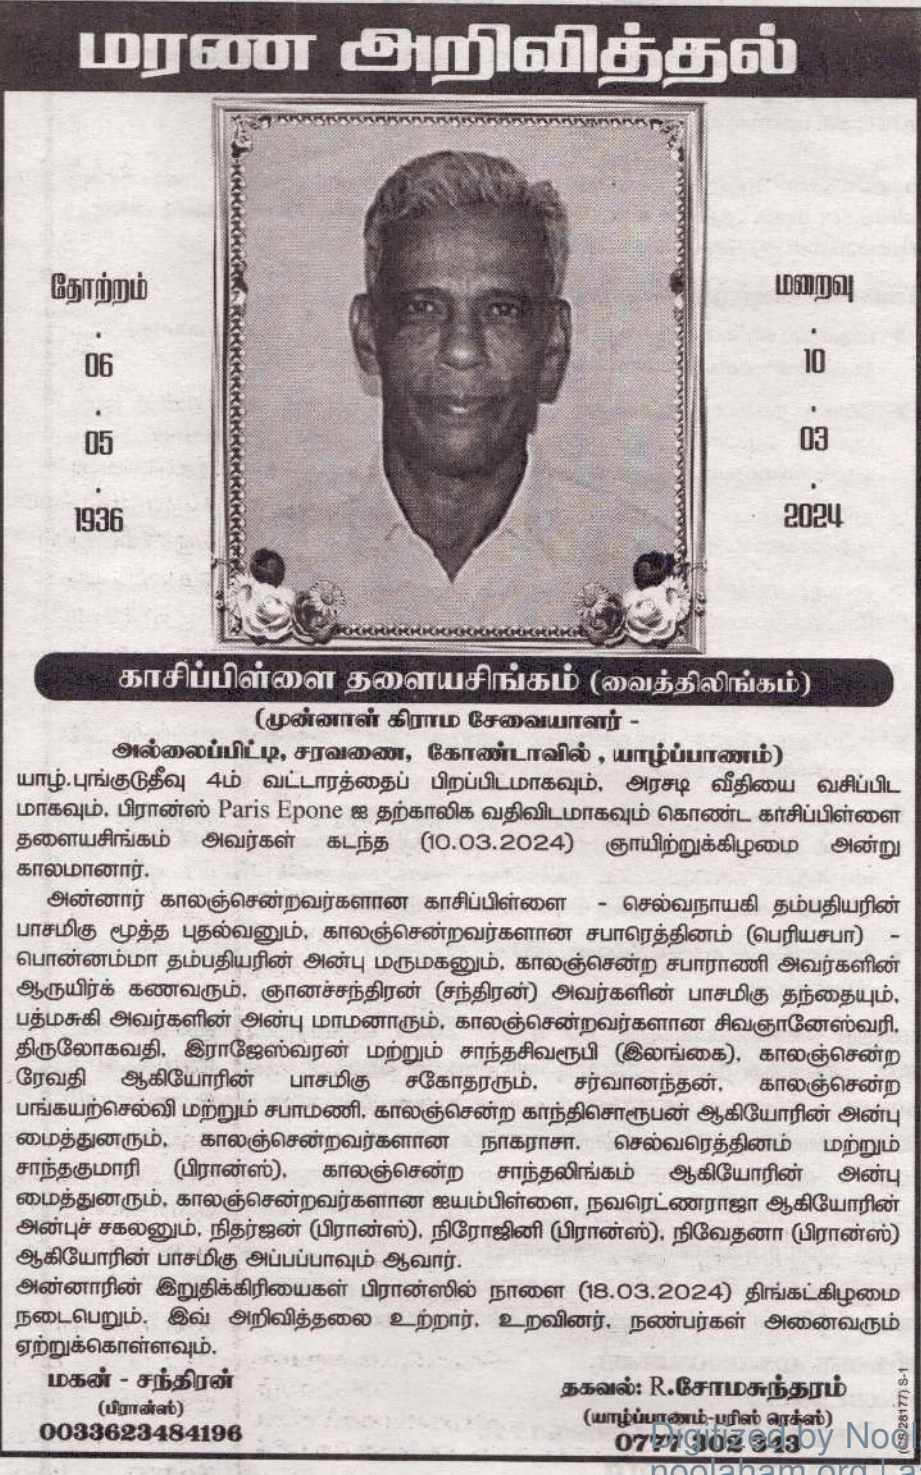 மரண அறிவித்தல்
தோற்றம்
.
06
.
05
.
1936
மறைவு
.
10
.
03
.
2024
காசிப்பிள்ளை தளையசிங்கம் (வைத்திலிங்கம்)
(முன்னாள் கிராம சேவையாளர் -
அல்லைப்பிட்டி, சரவணை, கோண்டாவில் , யாழ்ப்பாணம்)
யாழ்.புங்குடுதீவு 4ம் வட்டாரத்தைப் பிறப்பிடமாகவும், அரசடி வீதியை வசிப்பிட
மாகவும், பிரான்ஸ் Paris Epone ஐ தற்காலிக வதிவிடமாகவும் கொண்ட காசிப்பிள்ளை
தளையசிங்கம் அவர்கள் கடந்த (10.03.2024) ஞாயிற்றுக்கிழமை அன்று
காலமானார்.
அன்னார் காலஞ்சென்றவர்களான காசிப்பிள்ளை - செல்வநாயகி தம்பதியரின்
பாசமிகு மூத்த புதல்வனும், காலஞ்சென்றவர்களான சபாரெத்தினம் (பெரியசபா) -
பொன்னம்மா தம்பதியரின் அன்பு மருமகனும், காலஞ்சென்ற சபாராணி அவர்களின்
ஆருயிர்க் கணவரும், ஞானச்சந்திரன் (சந்திரன்) அவர்களின் பாசமிகு தந்தையும்,
பத்மசுகி அவர்களின் அன்பு மாமனாரும், காலஞ்சென்றவர்களான சிவஞானேஸ்வரி,
திருலோகவதி, இராஜேஸ்வரன் மற்றும் சாந்தசிவரூபி (இலங்கை), காலஞ்சென்ற
ரேவதி ஆகியோரின் பாசமிகு சகோதரரும், சர்வானந்தன், காலஞ்சென்ற
பங்கயற்செல்வி மற்றும் சபாமணி, காலஞ்சென்ற காந்திசொரூபன் ஆகியோரின் அன்பு
மைத்துனரும், காலஞ்சென்றவர்களான நாகராசா, செல்வரெத்தினம் மற்றும்
சாந்தகுமாரி (பிரான்ஸ்), காலஞ்சென்ற சாந்தலிங்கம் ஆகியோரின் அன்பு
மைத்துனரும், காலஞ்சென்றவர்களான ஐயம்பிள்ளை, நவரெட்ணராஜா ஆகியோரின்
அன்புச் சகலனும், நிதர்ஜன் (பிரான்ஸ்), நிரோஜினி (பிரான்ஸ்), நிவேதனா (பிரான்ஸ்)
ஆகியோரின் பாசமிகு அப்பப்பாவும் ஆவார்.
அன்னாரின் இறுதிக்கிரியைகள் பிரான்ஸில் நாளை (18.03.2024) திங்கட்கிழமை
நடைபெறும். இவ் அறிவித்தலை உற்றார், உறவினர், நண்பர்கள் அனைவரும்
ஏற்றுக்கொள்ளவும்.
மகன் - சந்திரன்
(பிரான்ஸ்)
0033623484196
தகவல்: R.சோமசுந்தரம்
(யாழ்ப்பாணம்-பரிஸ் ரெக்ஸ்)
0777 302 343
(CS/28177) S-1
Digitized by Nool
noolaham.org | a